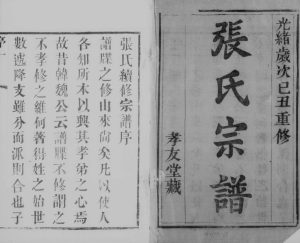 光緒歲次己丑重修
張氏宗譜
孝友堂藏
張氏續修宗譜序
譜牒之修由來尚矣凡以使人
各知所本以興其孝弟之心焉
故昔韓魏公云譜牒不修謂之
不孝修之維何著得姓之始世
數遞降支雖分而派則合也子
序一